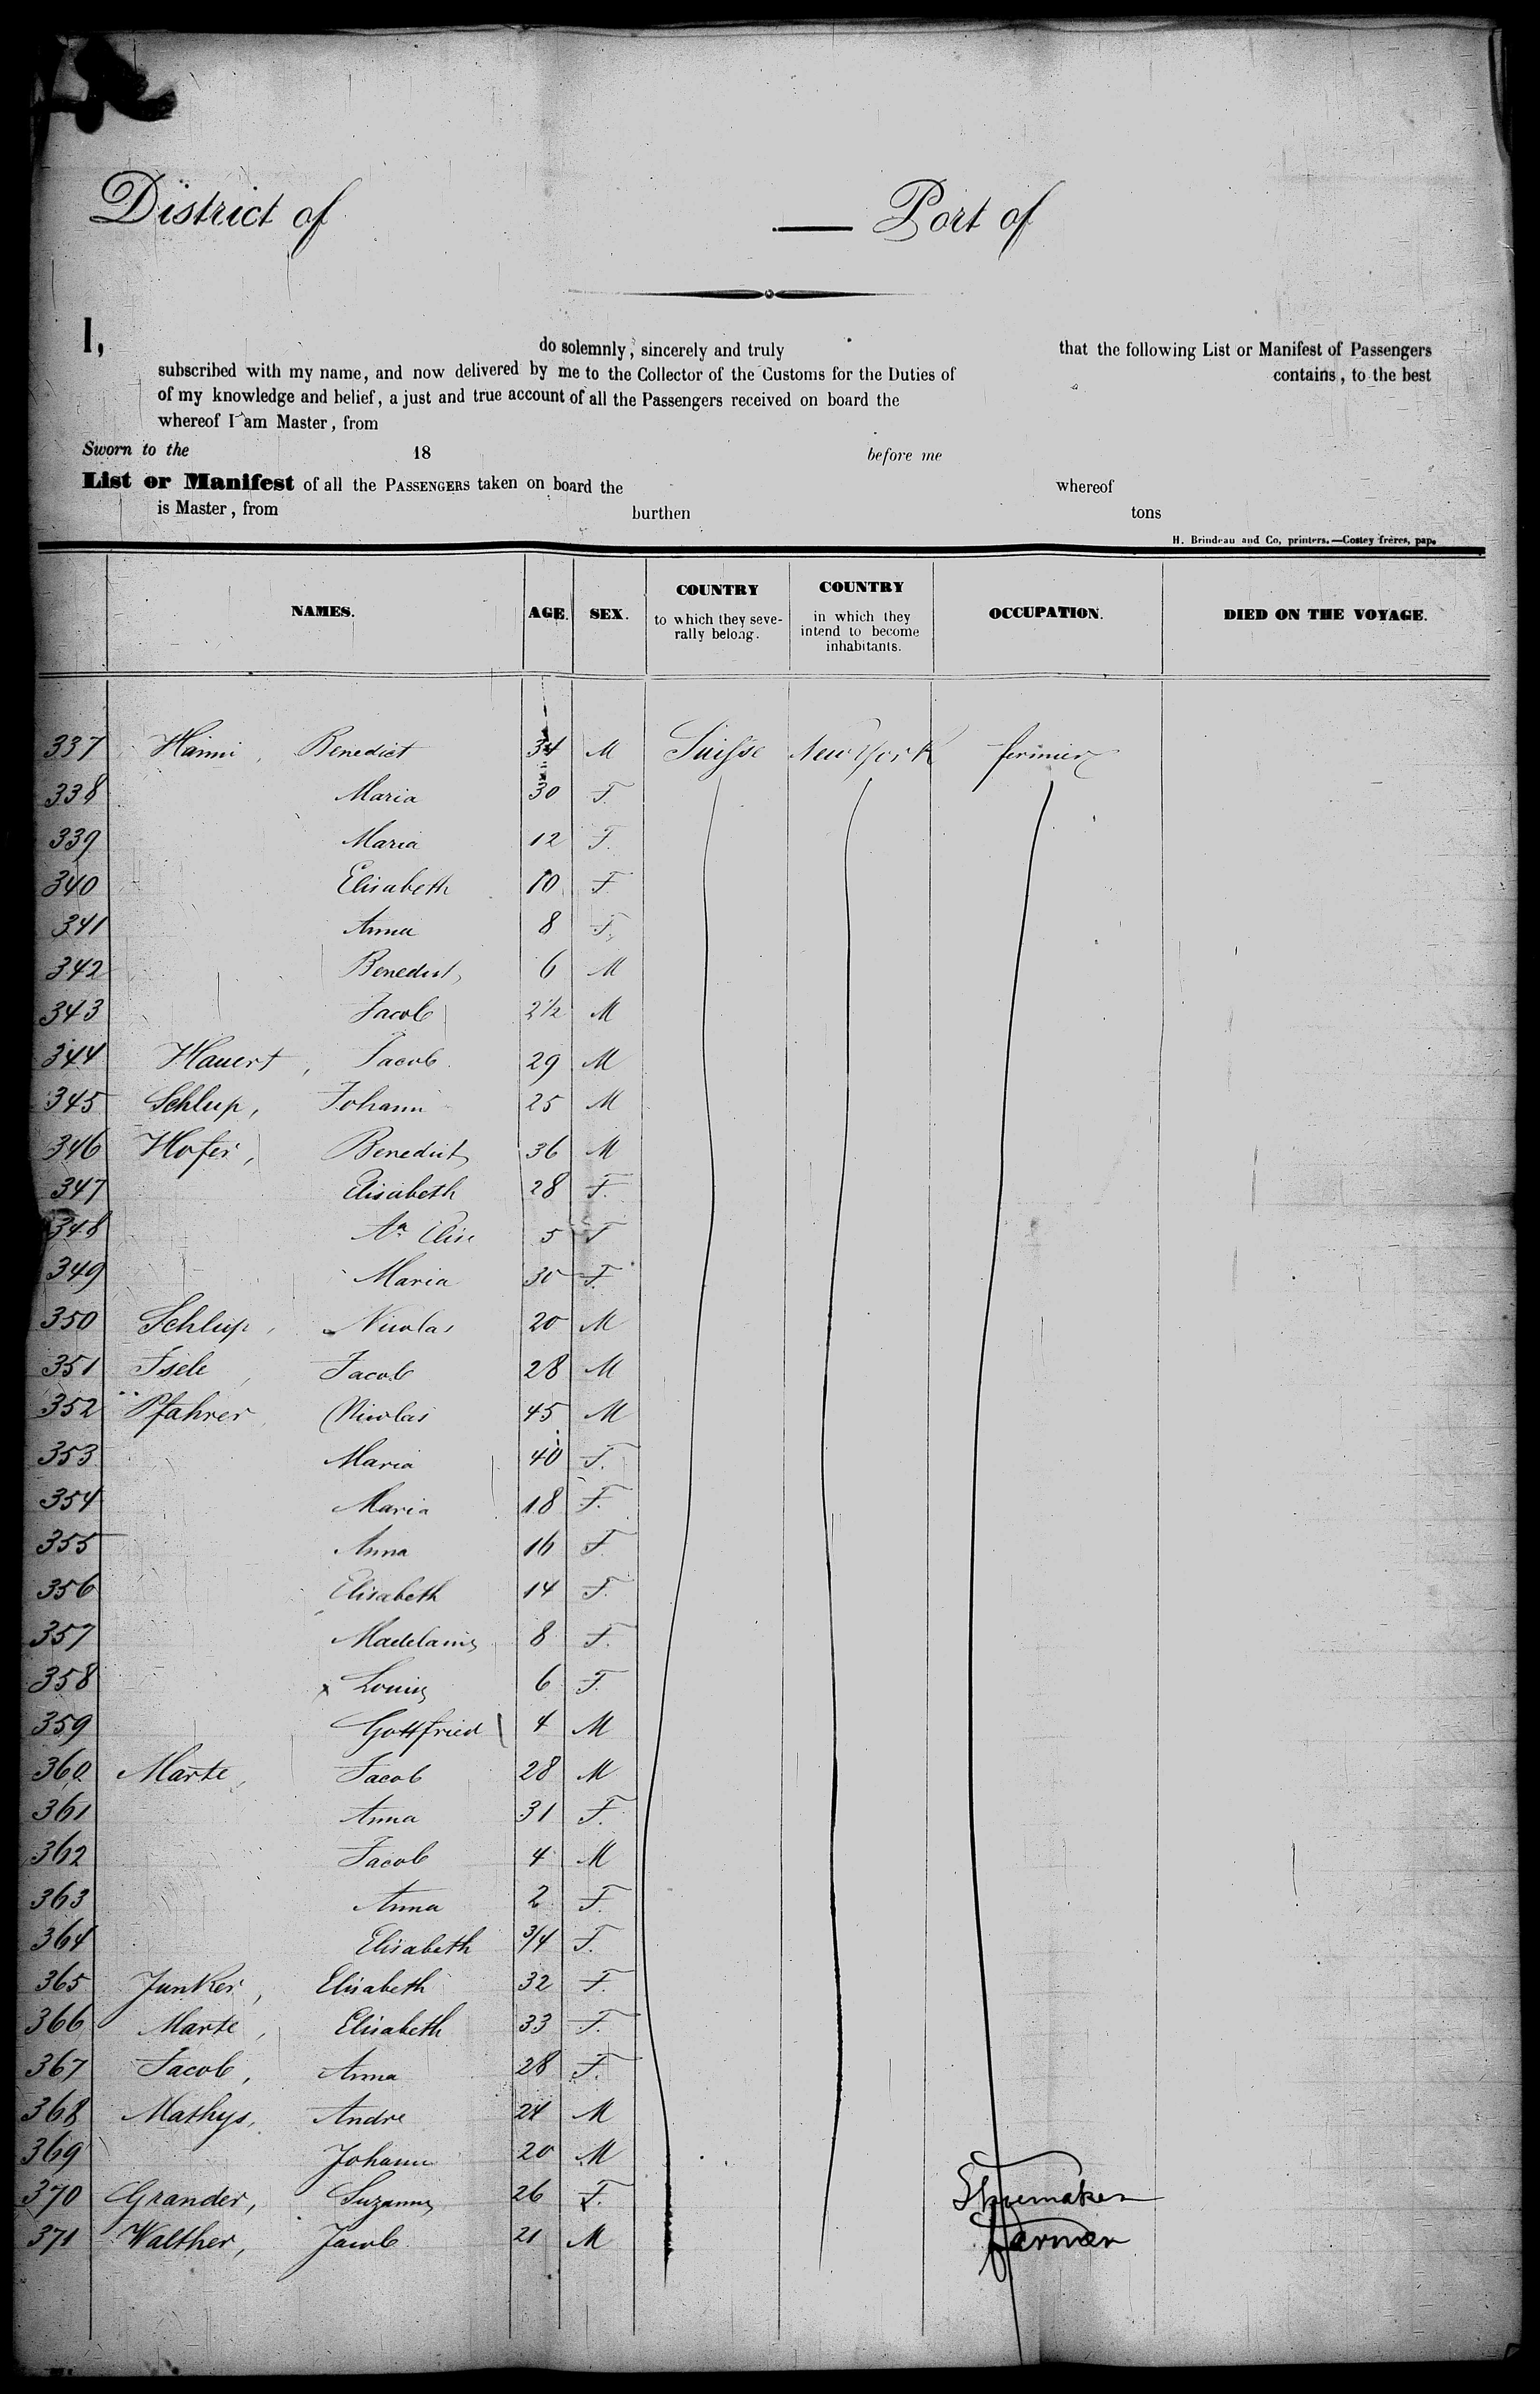 District of — Port of
I, do solemnly, sincerely and truly that the following List or Manifest of Passengers
subscribed with my name, and now delivered by me to the Collector of the Customs for the Duties of contains, to the best
of my knowledge and belief, a just and true account of all the Passengers received on board the
whereof I am Master, from
Sworn to the 18 before me
List or Manifest of all the PASSENGERS taken on board the whereof
is Master, from burthen tons
H. Brindeau and Co, printers.—Costey frères, pap.
NAMES. AGE. SEX. COUNTRY to which they seve-rally belong. COUNTRY in which they intend to become inhabitants. OCCUPATION. DIED ON THE VOYAGE.
337 Hänni, Benedict 34 M Suisse New York fermier
338 Maria 30 F.
339 Maria 12 F.
340 Elisabeth 10 F
341 Anna 8 F.
342 Benedict 6 M
343 Jacob 2 1/2 M
344 Hauert, Jacob 29 M
345 Schlup, Johann 25 M
346 Hofer, Benedict 36 M
347 Elisabeth 28 F.
348 Aa Elise 5 F
349 Maria 30 F.
350 Schlup, Nicolas 20 M
351 Isele, Jacob 28 M
352 Pfahrer, Nicolas 45 M
353 Maria 40 F.
354 Maria 18 F.
355 Anna 16 F
356 Elisabeth 14 F.
357 Madelaine 8 F.
358 x Louise 6 F.
359 Gottfried 4 M
360 Marte, Jacob 28 M
361 Anna 31 F.
362 Jacob 4 M
363 Anna 2 F.
364 Elisabeth 3/4 F.
365 Junker, Elisabeth 32 F.
366 Marte, Elisabeth 33 F.
367 Jacob, Anna 28 F.
368 Mathys, Andre 24 M
369 Johann 20 M
370 Grander, Suzanne 26 F. Shoemaker
371 Walther, Jacob 21 M farmer